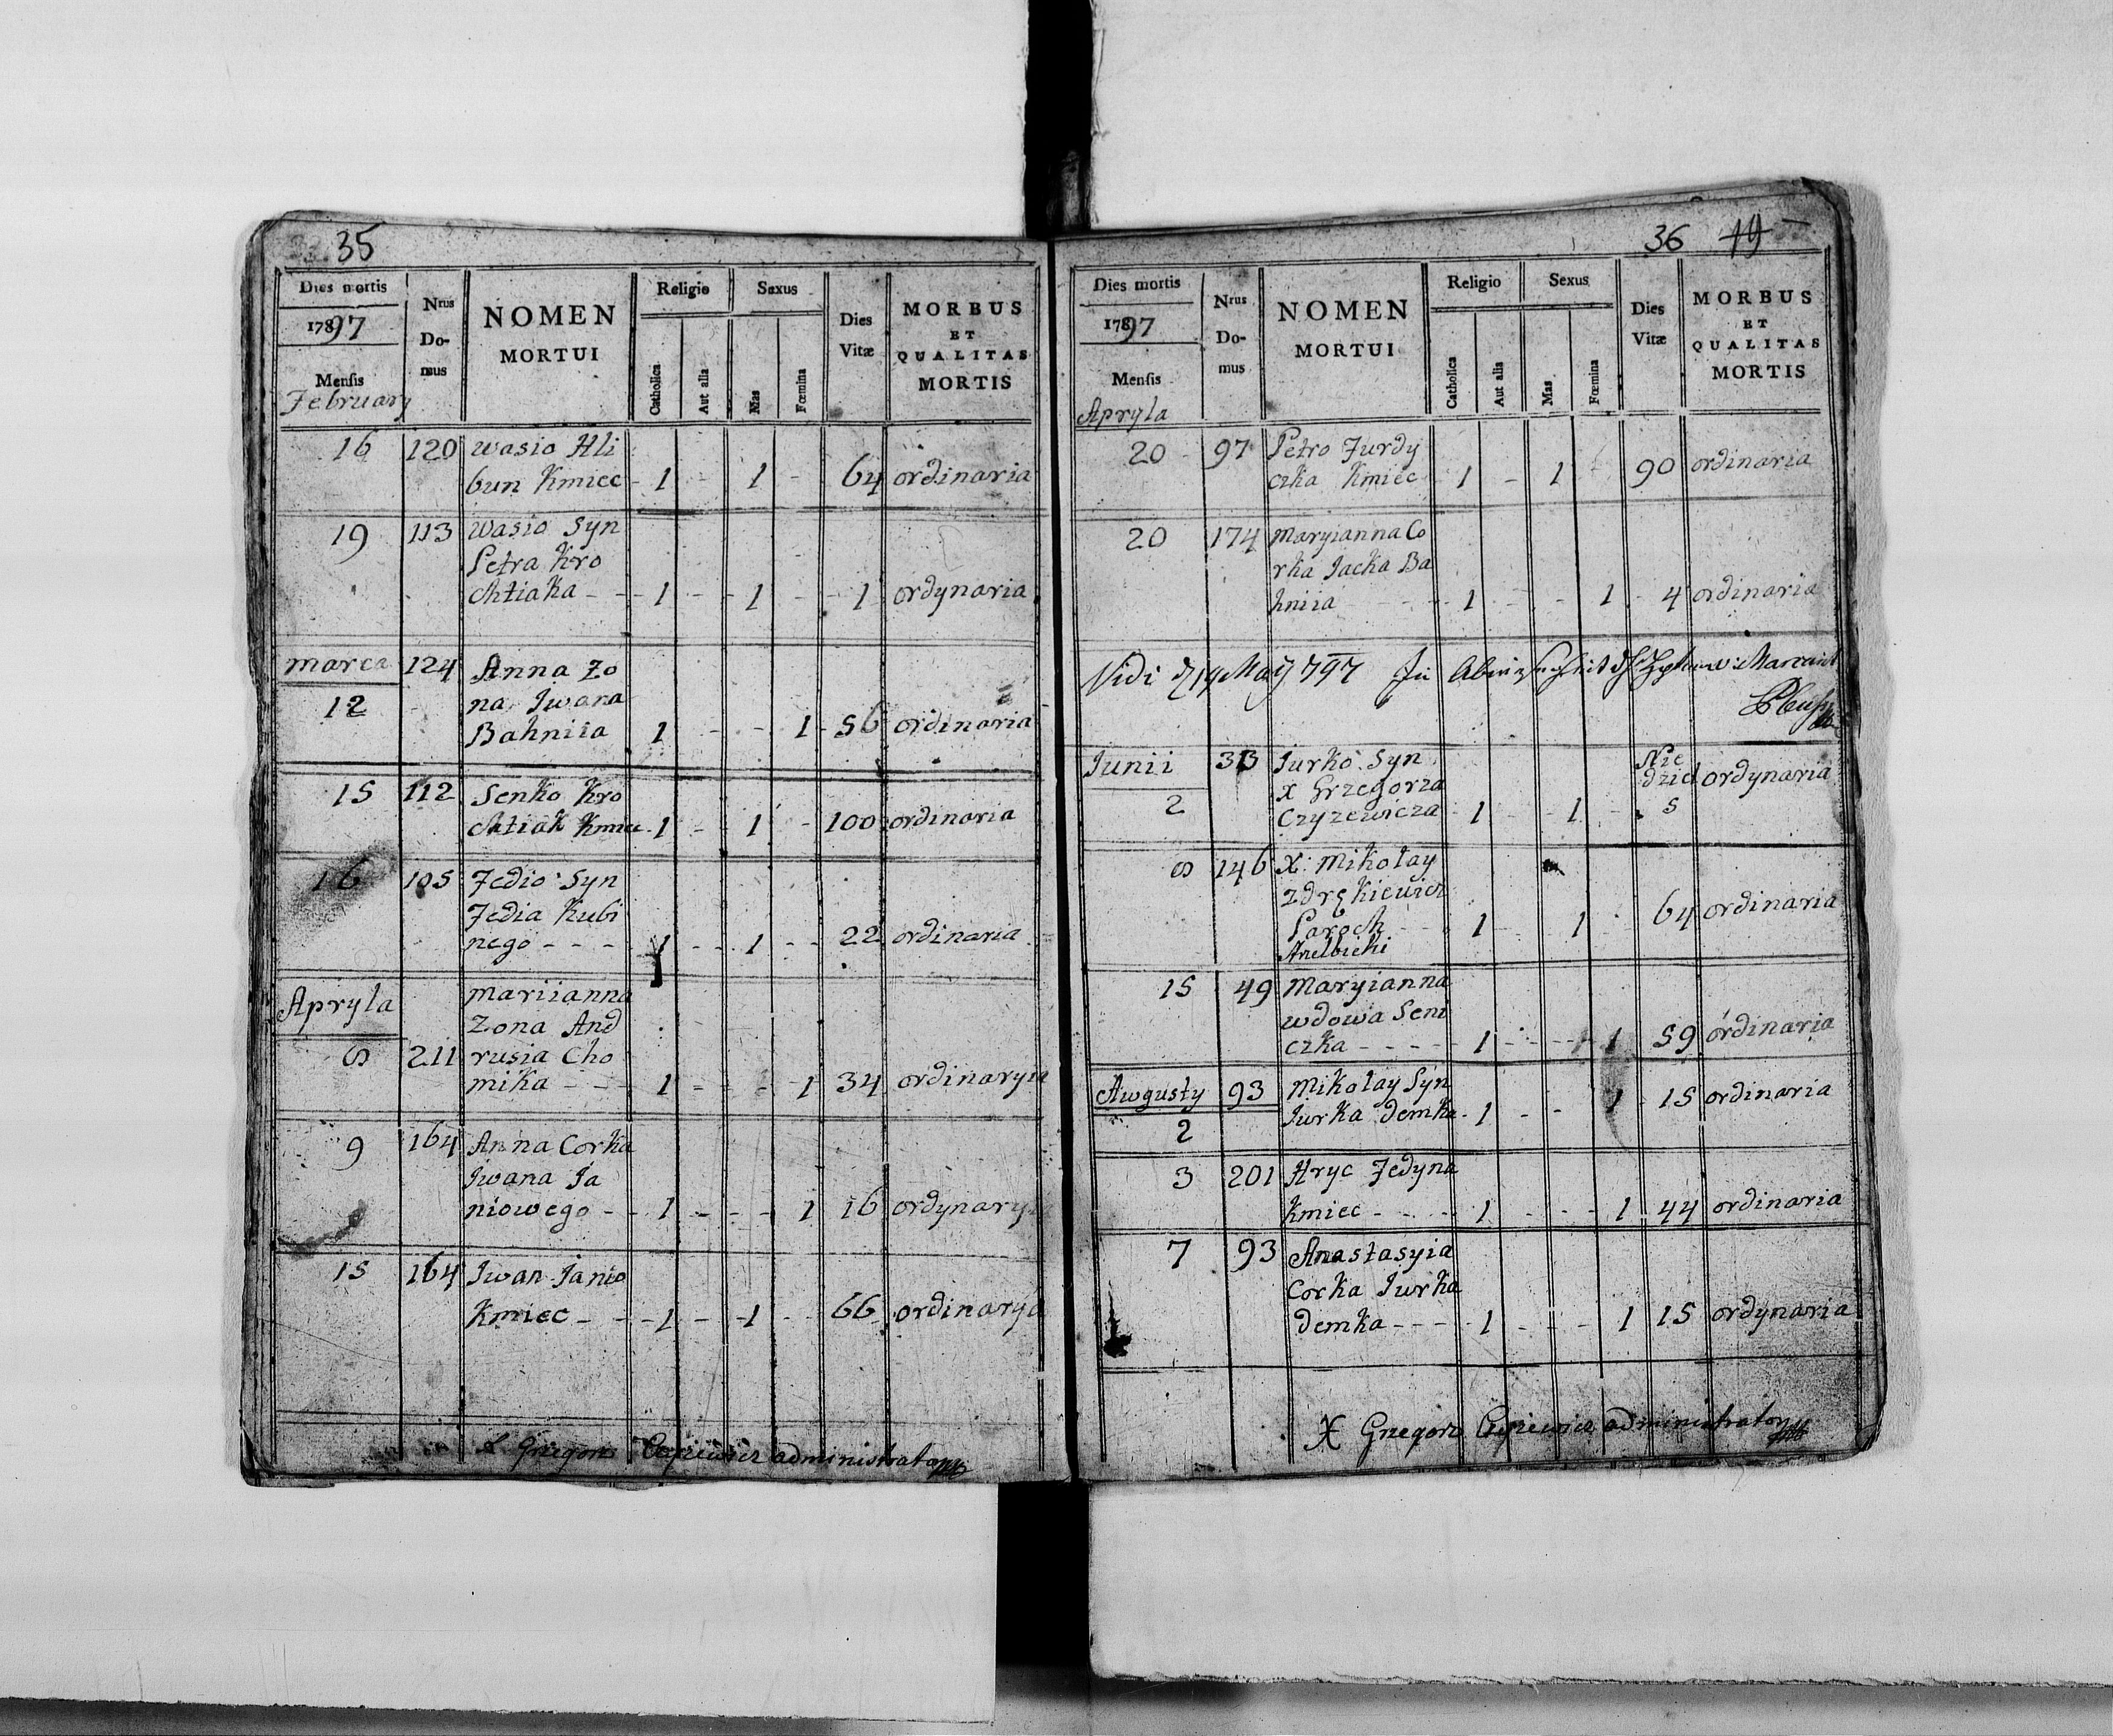 35
Dies mortis
1797
Mensis
February
Nrus
Do-
mus
NOMEN
MORTUI
Religio
Catholica
Aut alia
Sexus
Mas
Fœmina
Dies
Vitæ
MORBUS
ET
QUALITAS
MORTIS
16 120 Wasio Hli
bun Kmiec - 1 - 1 - 64 ordinaria
19 113 Wasio Syn
Petra Kro
chtiaka - - 1 - - 1 - - 1 ordynaria
marca 124 Anna Zo
12 na Iwana
Bahniia 1 - - 1 - 56 ordinaria
15 112 Senko Kro
chtiak Kmiec - 1 - 1 - 100 ordinaria
16 105 Fedio Syn
Fedia Kubi
nego - - - 1 - - 1 - - 22 ordinaria
Apryla mariianna
Zona And
8 211 rusia Cho
mika - - - 1 - - 1 34 ordinaryia
9 164 Anna Corka
Iwana Ja
niowego - - 1 - - - 1 16 ordynary
15 164 Iwan Janio
Kmiec - - - 1 - - 1 - - 66 ordinarya
Gregorz administrator
36 19
Dies mortis
1797
Mensis
Apryla
Nrus
Do-
mus
NOMEN
MORTUI
Religio
Catholica
Aut alia
Sexus
Mas
Fœmina
Dies
Vitæ
MORBUS
ET
QUALITAS
MORTIS
20 97 Petro Jurdy
czka Kmiec 1 - 1 90 ordinaria
20 174 Maryianna Co
rka Jacka Ba
hniia - - - - 1 - - - 1 - 4 ordinaria
Vidi May 797
Iunii 33 Jurko Syn Nie
x Grzegorza dziel ordynaria
2 Czyzewicza - 1 - - 1 - 5
8 146 X: Mikolay
Zdrękiewicz
Paroch - - 1 - 1 64 ordinaria
15 49 Maryianna
wdowa Seni
czka - - - - 1 - - - 1 59 ordinaria
Awgusty 93 Mikolay Syn
Jurka demka - 1 - - 1 15 ordinaria
2
3 201 Hryc Fedyna
Kmiec - - - - 1 - - - 1 44 ordinaria
7 93 Anastasyia
Corka Jurka
demka - - - - 1 - - - 1 15 ordynaria
X Gregorz administrator